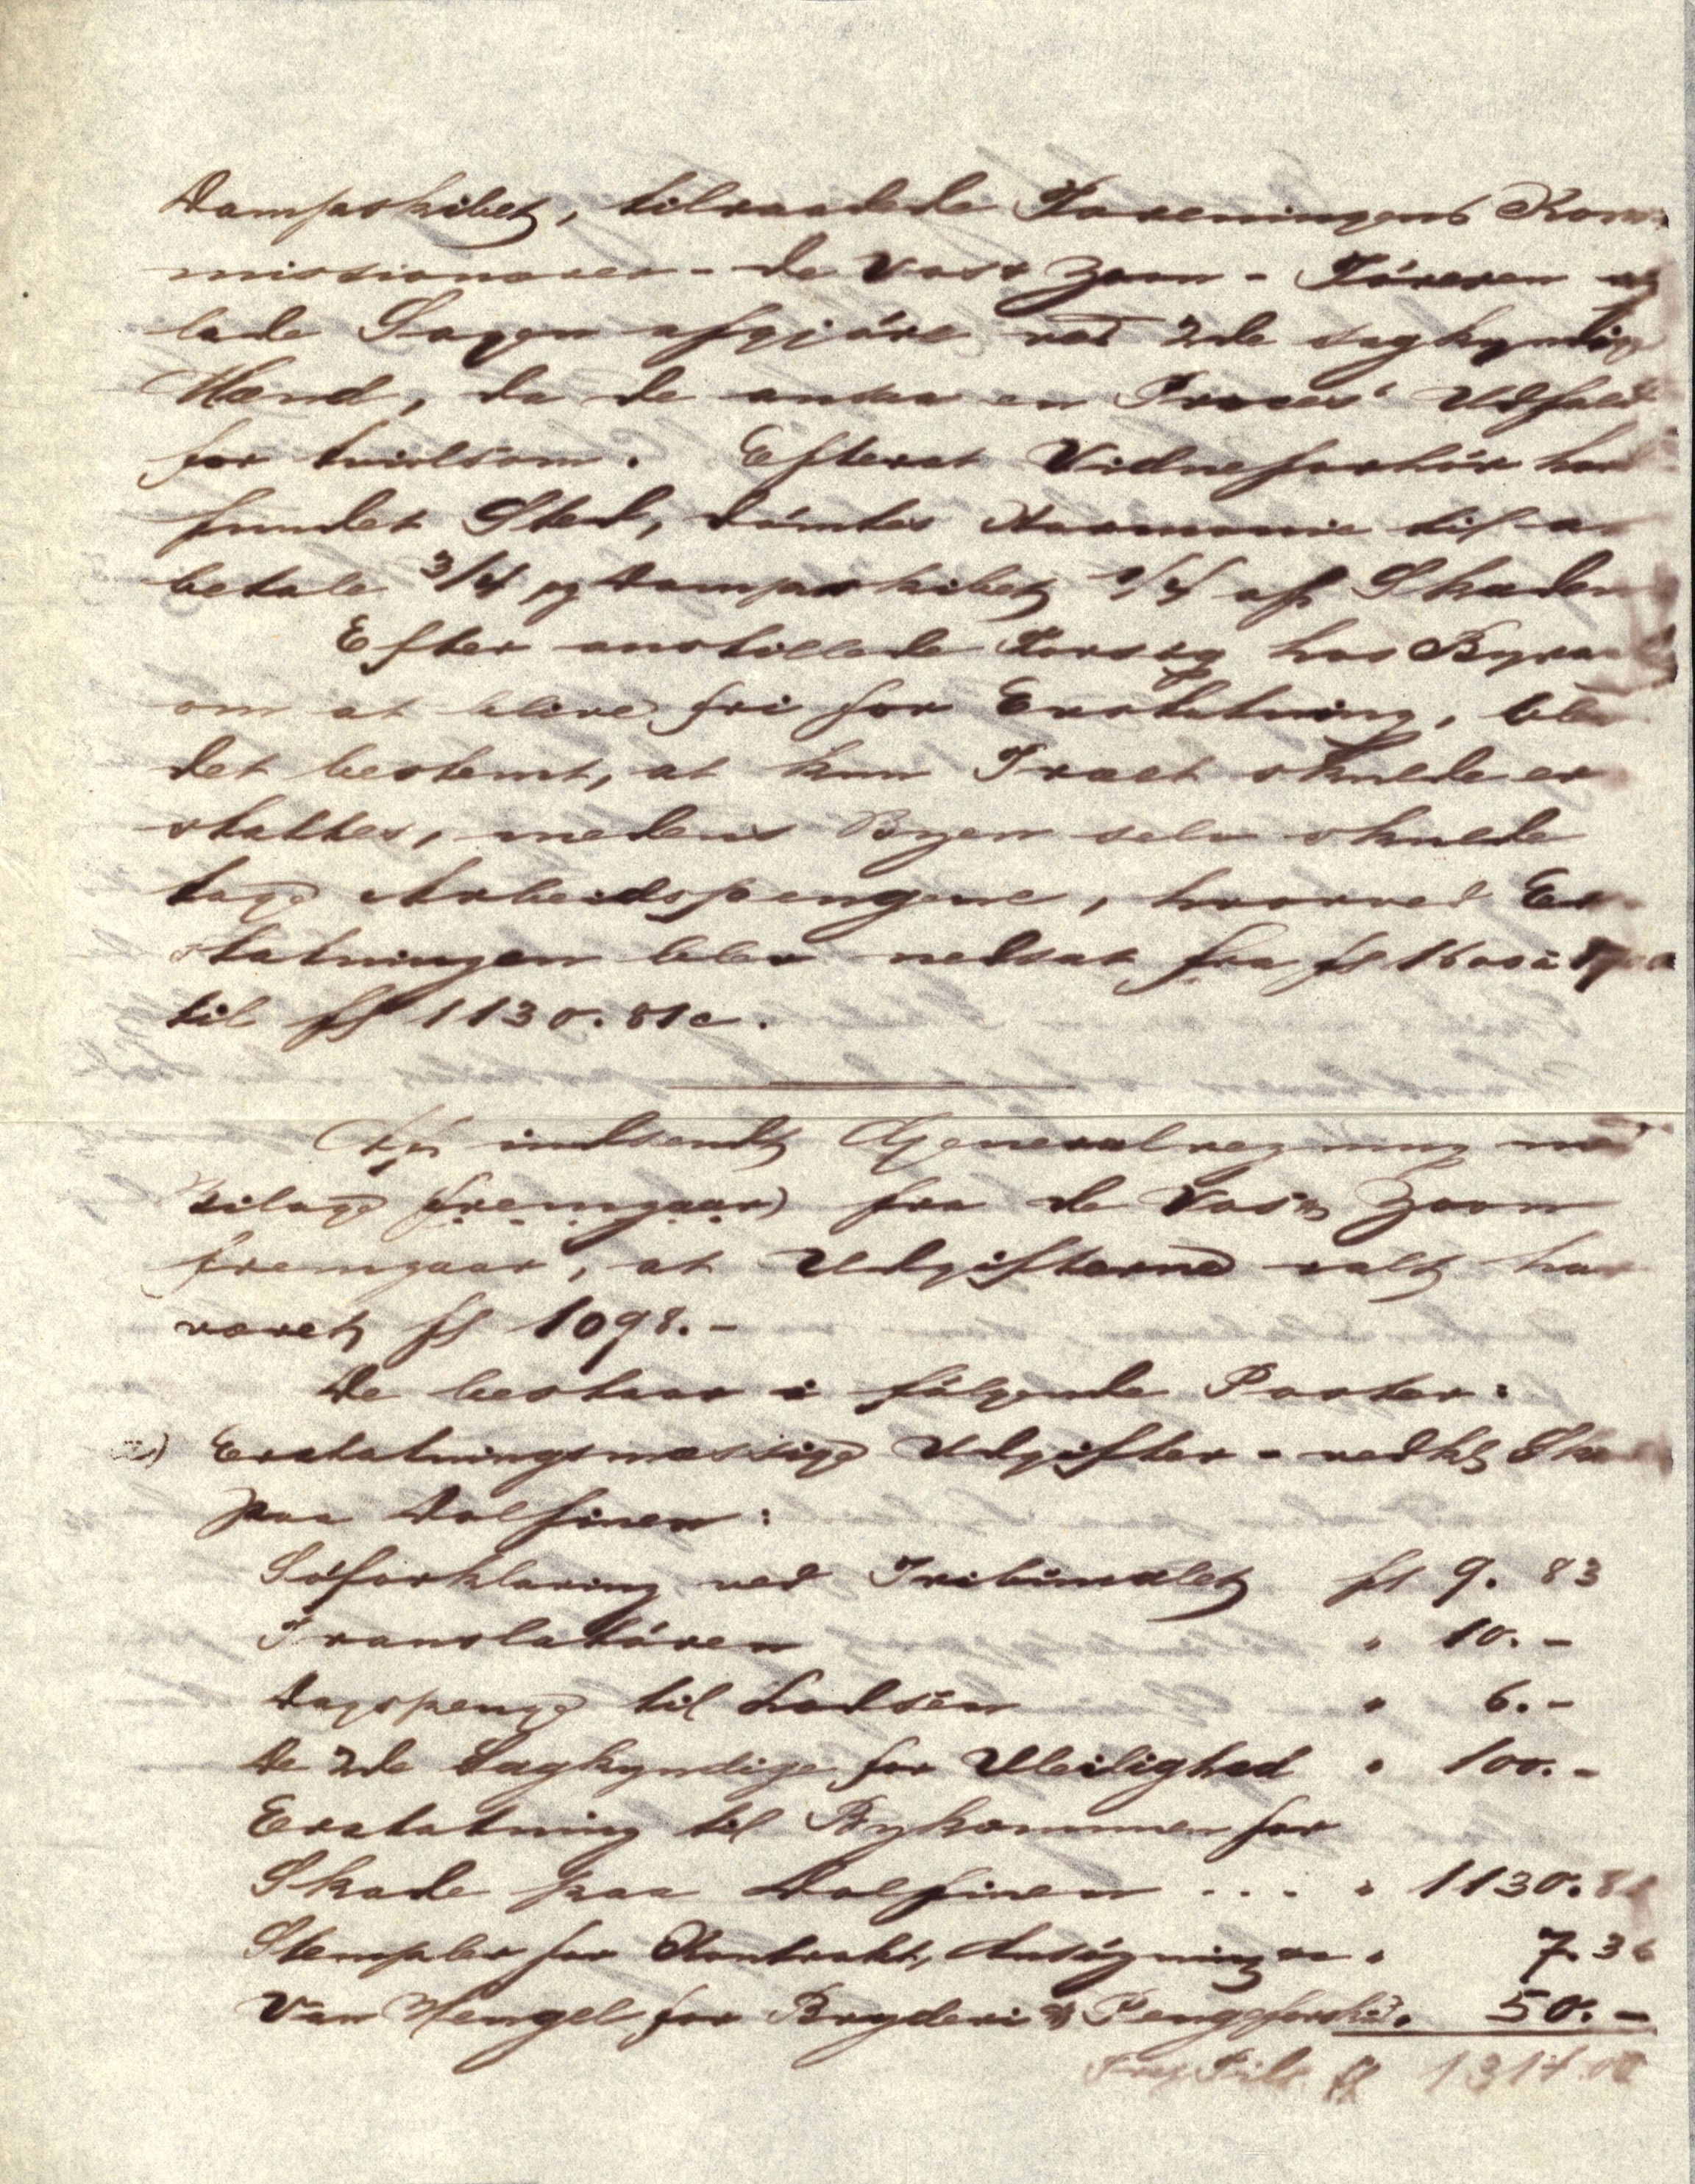 Dampskibet, tilraadede Foreningens Kom-
missionærer - de Vos & Zoon - Föreren at
lade Sagen afgjöre ved 2de sagkyndige
Mænd, da de ansaa en Proces' Udfald
for tvivlsom. Efterat Vidneforhör havde
fundet Sted, dömtes Harmonie til at
betale 3/4 og Dampskibet 1/4 af Skaden
Efter anstillede Forsög hos Byraad
om at blive fri for Erstatning, blev
det bestemt, at kun Træet skulde er
stattes, medens Byen selv skulde
tage Arbeidspengene, hvorved Er-
statningen blev nedsat fra fl 1600 à 1700
til fl 1130. 81 c.
Af indsendt Generalregning med
Bilage fremgaar fra de Vos & Zoon
fremgaar, at Udgifterne ialt har
været fl 1098.-
De bestaar i fölgende Poster:
a) Erstatningsmæssige Udgifter - vedk. Skade
paa Dolfinen:
Söforklaring ved Tribunalet fl 9. 83
Translatören " 10. -
Dagspenge til Lodsen " 6. -
De 2de Sagkyndige for Uleilighed " 100. -
Erstatning til Bykommunen for
Skade paa Dolfinen . . . " 1130. 81
Stempler for Kontrakt, Ansögning &c " 7. 36
Van Hengel for Bryderi & Pengeforskud " 50. -
fl 1314.00